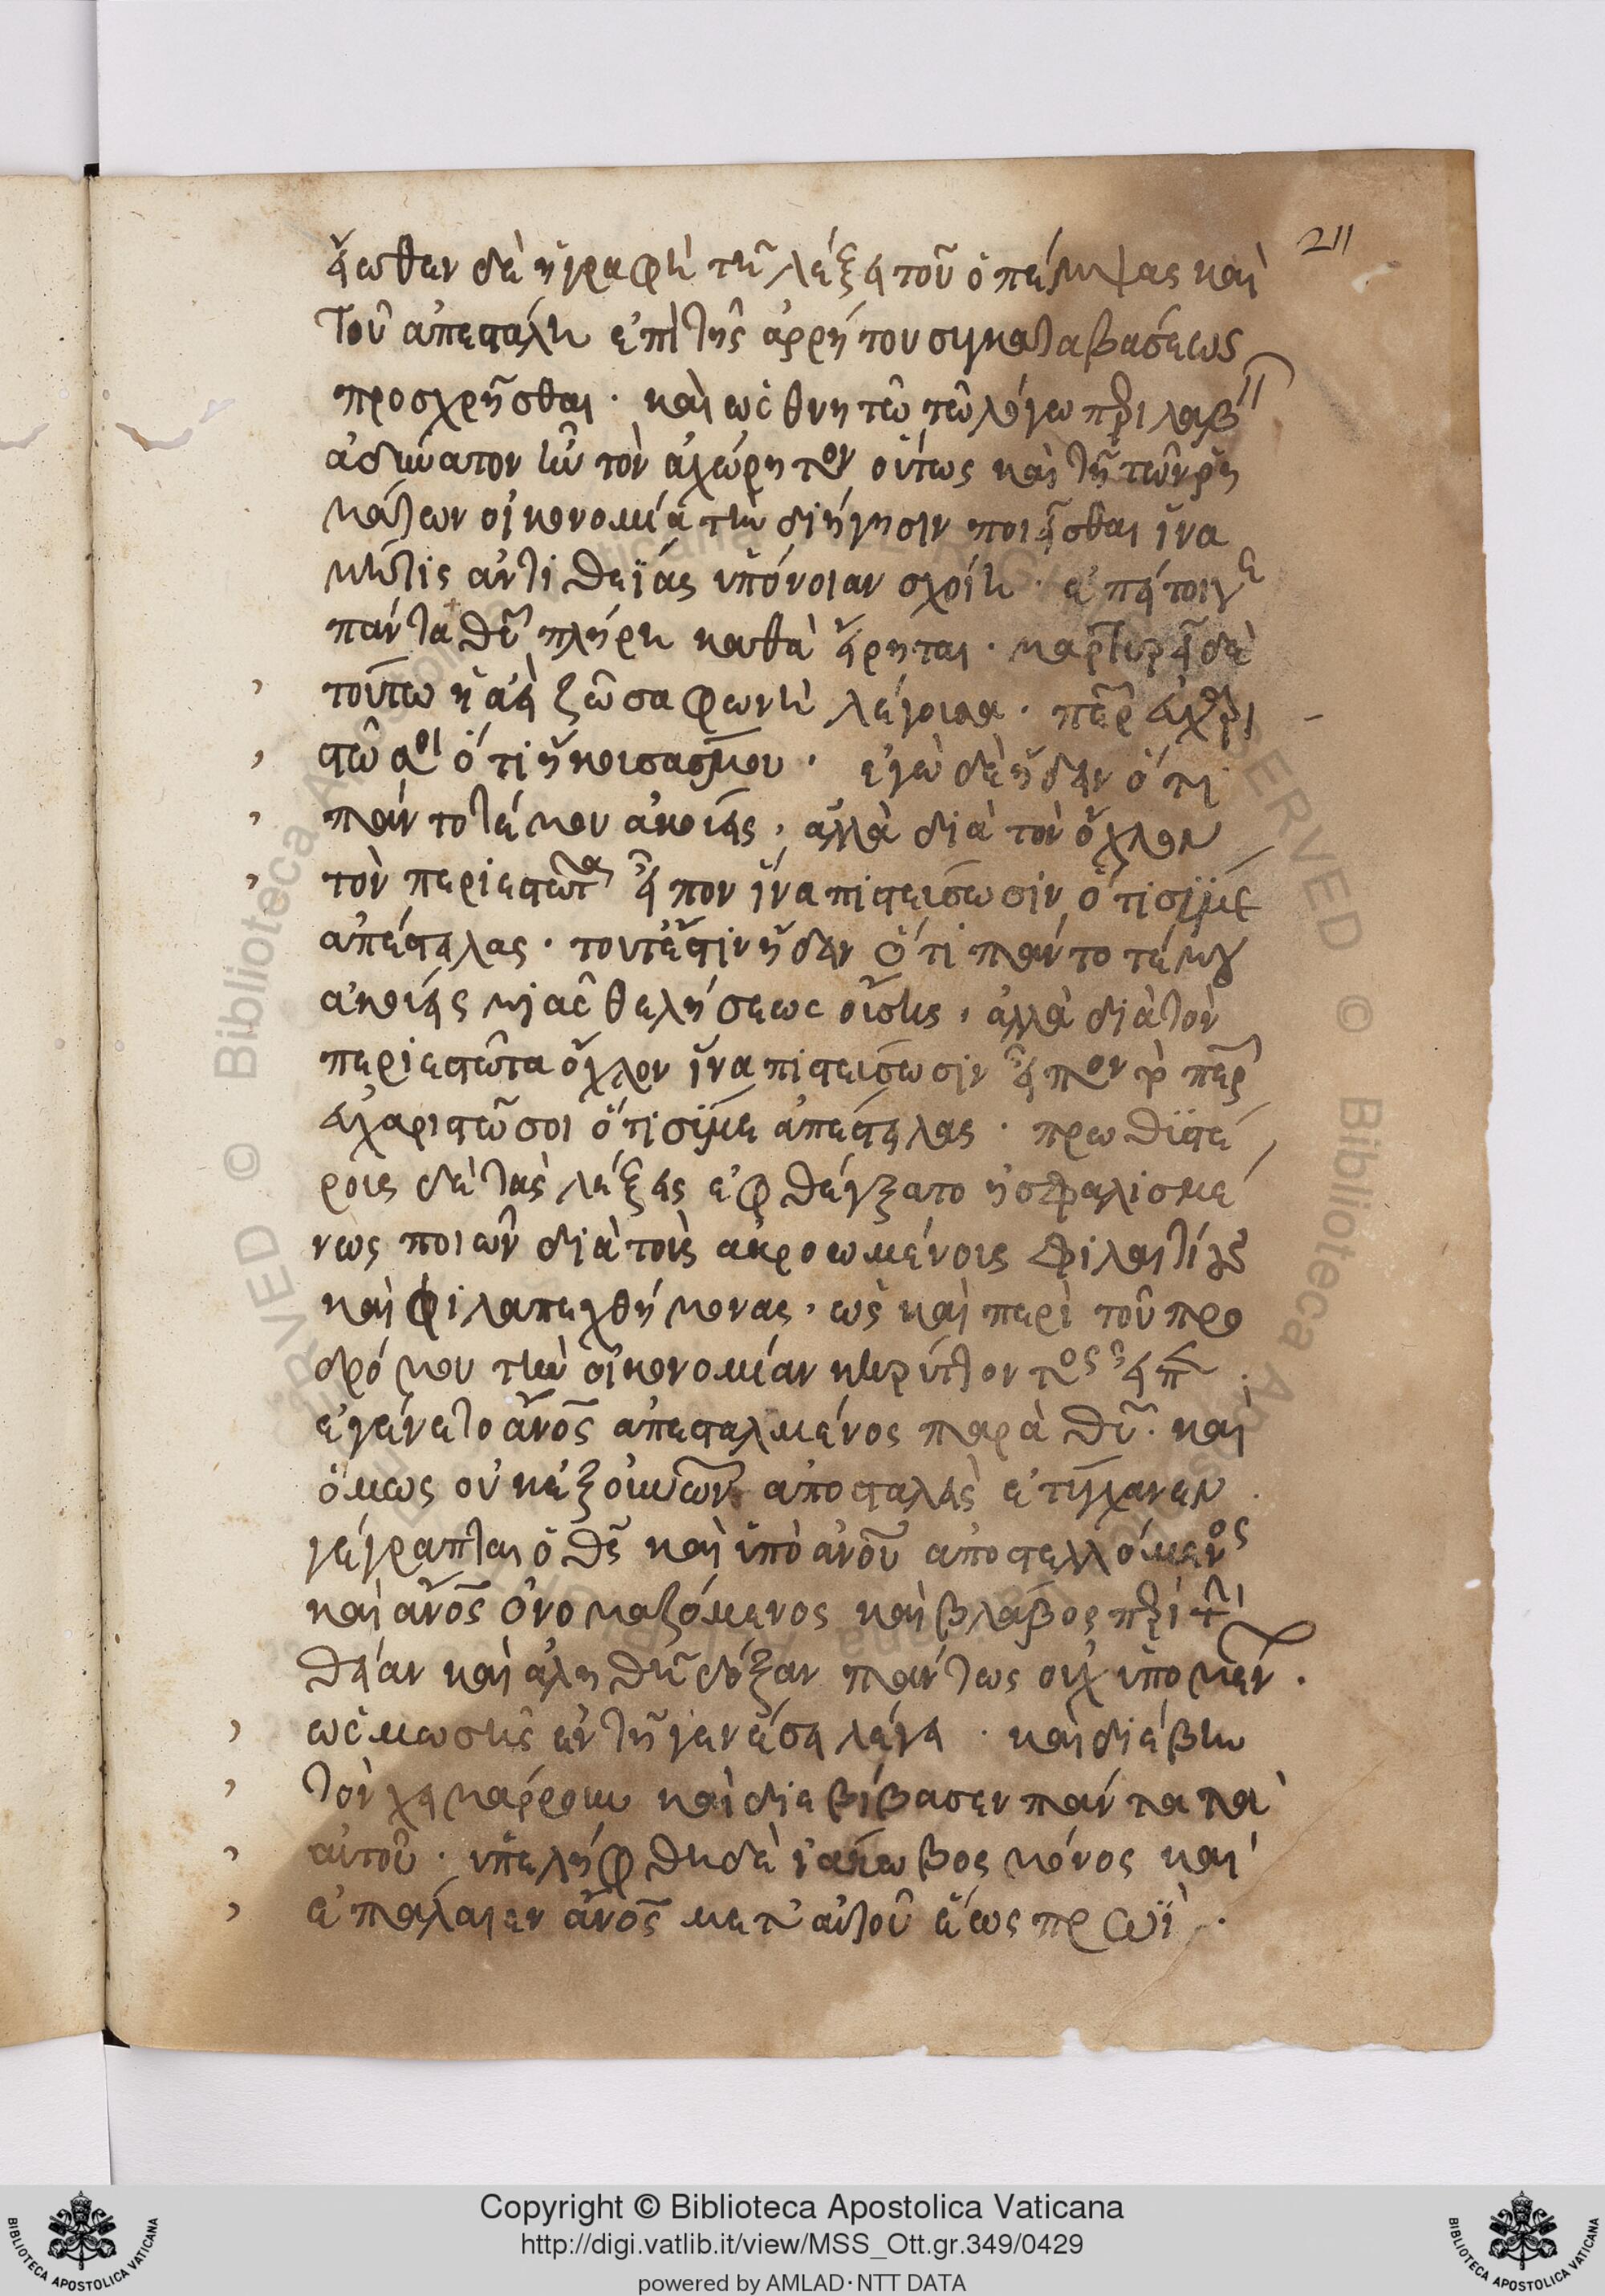 211
εἴωθεν δὲ ἡ γραφὴ τῆ λέξει τοῦ ὁ πέμψας καὶ
τοῦ ἀπεστάλη ἐπὶ τῆς ἀρρήτου συγκαταβάσεως
προσχρῆσθαι · καὶ ὡς θνητῶ τῶ λόγω περιλαβεῖν
ἀδύνατον ἦν τὸν ἀχώρητον οὕτως καὶ τῆ τῶν ῥη
μάτων οἰκονομία τὴν διήγησιν ποιεῖσθαι ἵνα
μήτις ἀντιθεΐας ὑπόνοιαν σχοίη · ἐπεί τοι γε
πάντα θῦ πλήρη καθὰ εἴρηται · μαρτυρεῖ δὲ
τούτω ἡ ἀεὶ ζῶσα φωνὴ λέγουσα · περ εὐχαρι
στῶ σοι ὅτι ἤκουσας μου · ἐγὼ δὲ ἤδειν ὅτι
πάντοτέ μου ἀκούεις, ἀλλὰ διὰ τὸν ὄχλον
τὸν περιεστῶτα εἶπον ἵνα πιστεύσωσιν ὅτι σύ με
ἀπέστειλας · τουτέστιν ἤδειν ὅτι πάντοτέ μου
ἀκούεις μιᾶς θελήσεως οὔσης, ἀλλὰ διὰ τὸν
περιεστῶτα ὄχλον ἵνα πιστεύσωσιν εἶπον τὸ περ
εὐχαριστῶ σοι ὅτι σύ με ἀπέστειλας · πρωθυστέ
ρους δὲ τὰς λέξεις ἐφθέγξατο ἠσφαλισμέ
νως ποιῶν διὰ τοὺς ἀκροωμένους φιλαιτίους
καὶ φιλαπεχθήμονας, ὡς καὶ περὶ τοῦ προ
δρόμου τὴν οἰκονομίαν κηρύττοντος εἶπεν
ἐγένετο ἄνος ἀπεσταλμένος παρὰ θῦ · καὶ
ὅμως οὐκ ἐξ οὐνῶν ἀποσταλεὶς ἐτύγχανεν
γέγραπται ὁ θς καὶ ὑπὸ ἀνου ἀποστελλόμενος
καὶ ἄνος ὀνομαζόμενος καὶ βλάβος περὶ τὴν
θείαν καὶ ἀληθῆ δόξαν πάντως οὐχ ὑπομένει ·
ὡς μωσῆς ἐν τῆ γενέσει λέγει · καὶ διέβη
τὸν χειμάρρουν καὶ διεβίβασεν πάντα τὰ
αὐτοῦ · ὑπελήφθη δὲ ἰακωβος μόνος καὶ
ἐπάλαιεν ἄνος μετ' αὐτοῦ ἕως πρωΐ ·
Copyright © Biblioteca Apostolica Vaticana
http://digi.vatlib.it/view/MSS_Ott.gr.349/0429
powered by AMLAD·NTT DATA
BIBLIOTECA APOSTOLICA VATICANA
BIBLIOTECA APOSTOLICA VATICANA